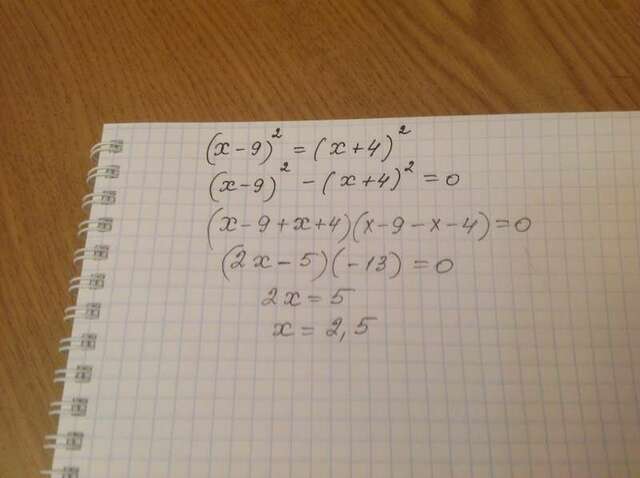 (x-9)² = (x+4)²
(x-9)² - (x+4)² = 0
(x-9+x+4)(x-9-x-4)=0
(2x-5)(-13) = 0
2x = 5
x = 2,5